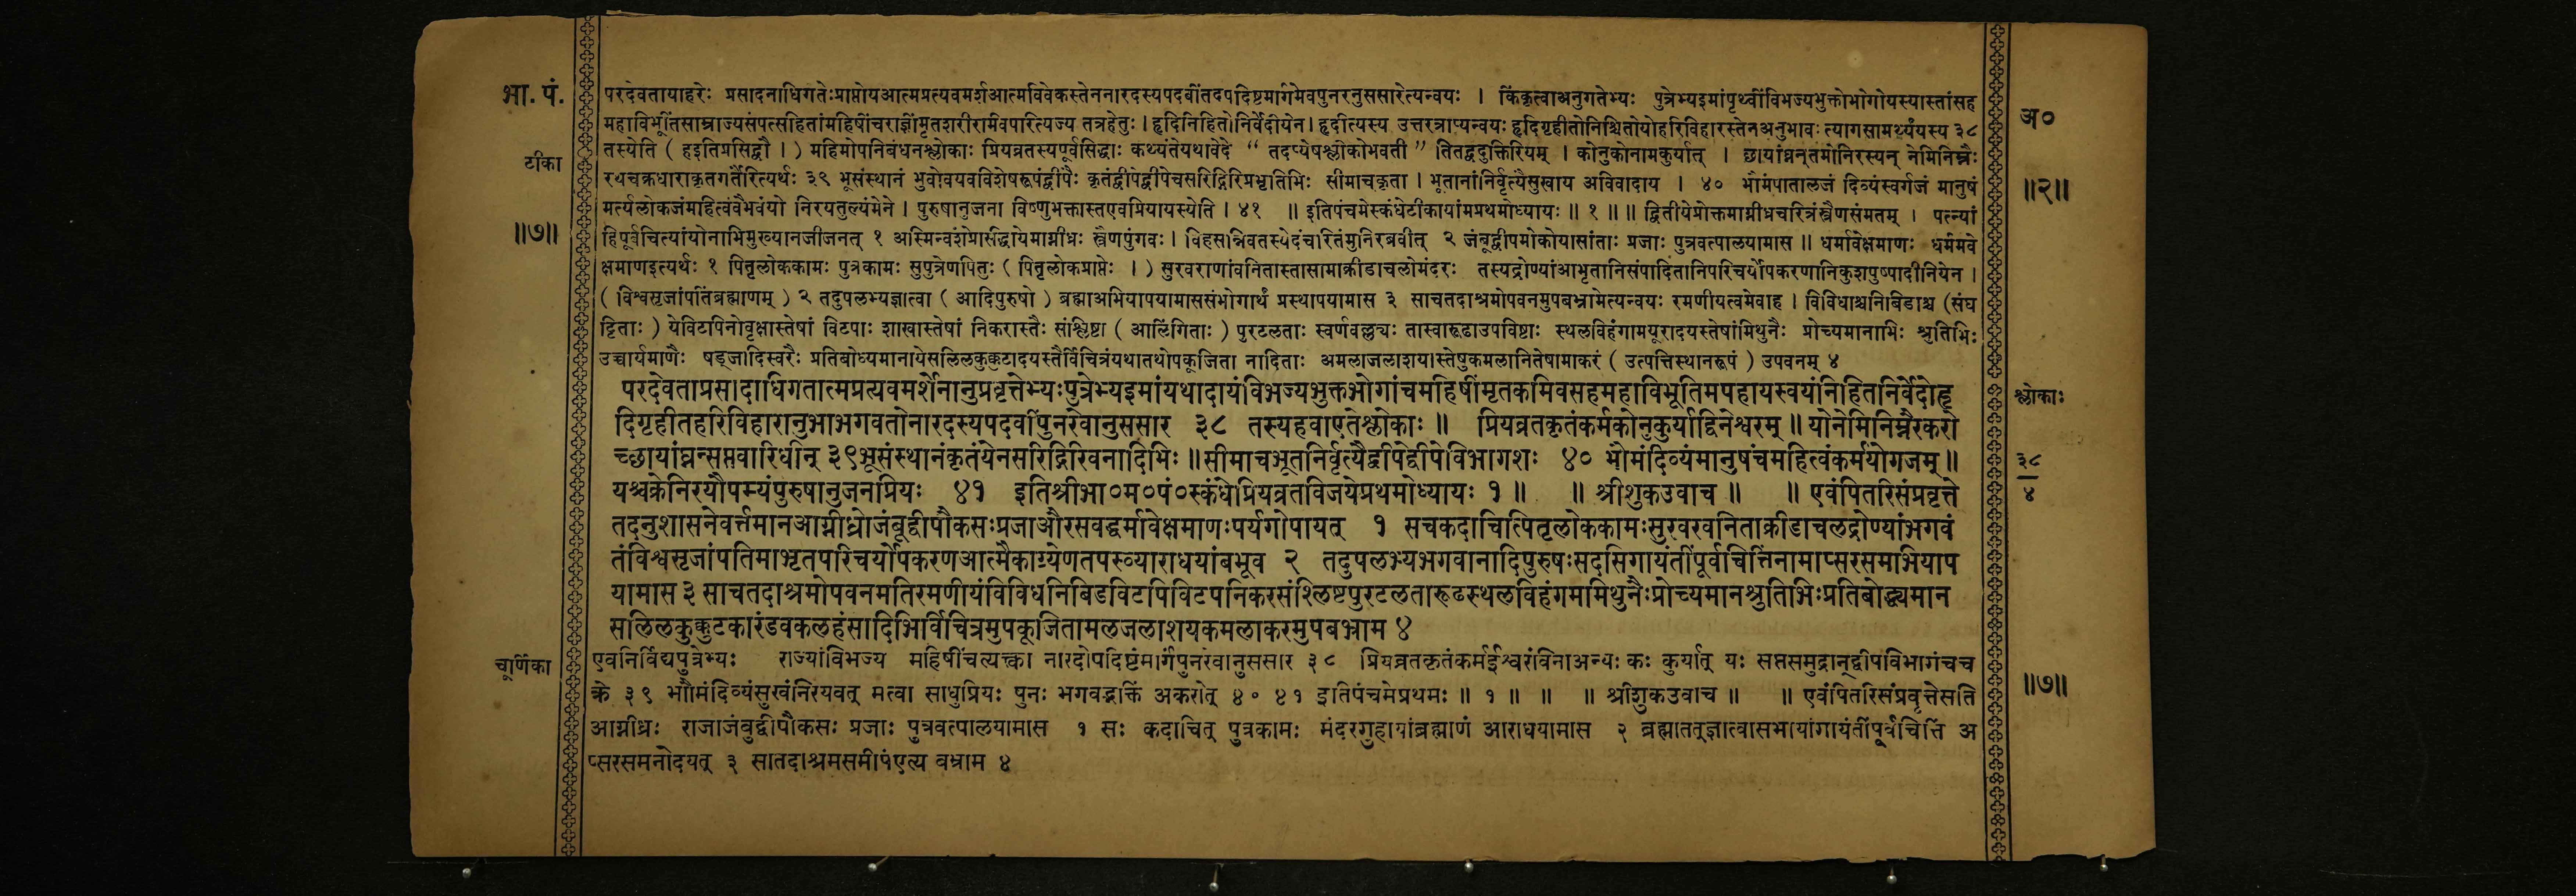 भा. पं.
टीका
॥७॥
परदेवतायाहरेः प्रसादनाधिगतेःप्राप्तोयआत्मप्रत्यवमर्शआत्मविवेकस्तेननारदस्यपदवींतदपदिष्टमार्गमेवपुनरनुससारेत्यन्वयः । किंकृत्वाअनुगतेभ्यः पुत्रेभ्यइमांपृथ्वींविभज्यभुक्तोभोगोयस्यास्तांसह
महाविभूतिंसाम्राज्यसंपत्सहितांमहिषींचराज्ञींमृतशरीरामिवपरित्यज्य तत्रहेतुः । हृदिनिहितोनिर्वेदोयेन । हृदीत्यस्य उत्तरत्राप्यन्वयः हृदिगृहीतोनिश्चितोयोहरिविहारस्तेनअनुभावः त्यागसामर्थ्यंयस्य ३८
तस्येति ( हइतिप्रसिद्धौ । ) महिमोपनिबंधनश्लोकाः प्रियव्रतस्यपूर्वसिद्धाः कथ्यंतेयथावेदे “ तदप्येषश्लोकोभवती ” तितद्वदुक्तिरियम् । कोनुकोनामकुर्यात् । छायांघ्नन्तमोनिरस्यन् नेमिनिम्नैः
रथचक्रधाराकृतगर्तैरित्यर्थः ३९ भूसंस्थानं भुवोवयवविशेषरूपंद्वीपैः कृतंद्वीपेद्वीपेचसरिद्गिरिप्रभृतिभिः सीमाचकृता । भूतानांनिर्वृत्यैसुखाय अविवादाय । ४० भौमंपातालजं दिव्यंस्वर्गजं मानुषं
मर्त्यलोकजंमहित्वंवैभवंयो निरयतुल्यंमेने । पुरुषानुजना विष्णुभक्तास्तएवप्रियायस्येति । ४१ ॥ इतिपंचमेस्कंधेटीकायांमप्रथमोध्यायः ॥ १ ॥ ॥ द्वितीयेप्रोक्तमाग्नीध्रचरित्रंस्त्रैणसंमतम् । पत्न्यां
हिपूर्वचित्यांयोनाभिमुख्यानजीजनत् १ अस्मिन्वंशेप्रसिद्धोयमाग्नीध्रः स्त्रैणपुंगवः । विहसन्निवतस्येदंचरितंमुनिरब्रवीत् २ जंबूद्वीपमोकोयासांताः प्रजाः पुत्रवत्पालयामास ॥ धर्मावेक्षमाणः धर्ममवे
क्षमाणइत्यर्थः १ पितृलोककामः पुत्रकामः सुपुत्रेणपितुः ( पितृलोकप्राप्तेः । ) सुरवराणांवनितास्तासामाक्रीडाचलोमंदरः तस्यद्रोण्यांआभृतानिसंपादितानिपरिचर्योपकरणानिकुशपुष्पादीनियेन ।
( विश्वसृजांपतिंब्रह्माणम् ) २ तदुपलभ्यज्ञात्वा ( आदिपुरुषो ) ब्रह्माअभियापयामाससंभोगार्थं प्रस्थापयामास ३ साचतदाश्रमोपवनमुपबभ्रामेत्यन्वयः रमणीयत्वमेवाह । विविधाश्चनिबिडाश्च (संघ
ट्टिताः ) येविटपिनोवृक्षास्तेषां विटपाः शाखास्तेषां निकरास्तैः संश्लिष्टा ( आलिंगिताः ) पुरटलताः स्वर्णवल्ल्यः तास्वारूढाउपविष्टाः स्थलविहंगामयूरादयस्तेषांमिथुनैः प्रोच्यमानाभिः श्रुतिभिः
उच्चार्यमाणैः षड्जादिस्वरैः प्रतिबोध्यमानायेसलिलकुक्कुटादयस्तैर्विचित्रंयथातथोपकूजिता नादिताः अमलाजलाशयास्तेषुकमलानितेषामाकरं ( उत्पत्तिस्थानरूपं ) उपवनम् ४
परदेवताप्रसादाधिगतात्मप्रत्यवमर्शेनानुप्रवृत्तेभ्यःपुत्रेभ्यइमांयथादायंविभज्यभुक्तभोगांचमहिषींमृतकमिवसहमहाविभूतिमपहायस्वयंनिहितनिर्वेदोहृ
दिगृहीतहरिविहारानुभाभगवतोनारदस्यपदवींपुनरेवानुससार ३८ तस्यहवाएतेश्लोकाः ॥ प्रियव्रतकृतंकर्मकोनुकुर्याद्विनेश्वरम् ॥ योनेमिनिम्नैरकरो
च्छायांघ्नन्सप्तवारिधीन् ३९भूसंस्थानंकृतंयेनसरिद्गिरिवनादिभिः ॥ सीमाचभूतनिर्वृत्यैद्वीपेद्वीपेविभागशः ४० भौमंदिव्यंमानुषंचमहित्वंकर्मयोगजम् ॥
यश्चक्रेनिरयौपम्यंपुरुषानुजनप्रियः ४१ इतिश्रीभा०म०पं०स्कंधेप्रियव्रतविजयेप्रथमोध्यायः १ ॥ ॥ श्रीशुकउवाच ॥ ॥ एवंपितरिसंप्रवृत्ते
तदनुशासनेवर्त्तमानआग्नीध्रोजंबूद्वीपौकसःप्रजाऔरसवद्धर्मावेक्षमाणःपर्यगोपायत् १ सचकदाचित्पितृलोककामःसुरवरवनिताक्रीडाचलद्रोण्यांभगवं
तंविश्वसृजांपतिमाभृतपरिचर्योपकरणआत्मैकाग्र्येणतपस्व्याराधयांबभूव २ तदुपलभ्यभगवानादिपुरुषःसदसिगायंतींपूर्वचित्तिंनामाप्सरसमभियाप
यामास ३ साचतदाश्रमोपवनमतिरमणीयंविविधनिबिडविटपिविटपनिकरसंश्लिष्टपुरटलतारूढस्थलविहंगममिथुनैःप्रोच्यमानश्रुतिभिःप्रतिबोद्ध्यमान
सलिलकुक्कुटकारंडवकलहंसादिभिर्विचित्रमुपकूजितामलजलाशयकमलाकरमुपबभ्राम ४
चूर्णिका
एवंनिर्विद्यपुत्रेभ्यः राज्यांविभज्य महिषींचत्यक्त्वा नारदोपदिष्टंमार्गंपुनरेवानुससार ३८ प्रियव्रतकृतंकर्मईश्वरंविनाअन्यः कः कुर्यात् यः सप्तसमुद्रान्द्वीपविभागंचच
क्रे ३९ भौमंदिव्यंसुखंनिरयवत् मत्वा साधुप्रियः पुनः भगवद्भक्तिं अकरोत् ४० ४१ इतिपंचमेप्रथमः ॥ १ ॥ ॥ ॥ श्रीशुकउवाच ॥ ॥ एवंपितरिसंप्रवृत्तेसति
आग्नीध्रः राजाजंबुद्वीपौकसः प्रजाः पुत्रवत्पालयामास १ सः कदाचित् पुत्रकामः मंदरगुहायांब्रह्माणं आराधयामास २ ब्रह्मातत्ज्ञात्वासभायांगायंतींपूर्वचित्तिं अ
प्सरसमनोदयत् ३ सातदाश्रमसमीपंएत्य बभ्राम ४
अ०
॥२॥
श्लोकाः
३८
४
॥७॥